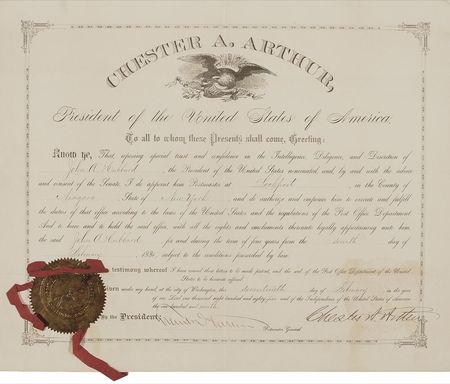 CHESTER A. ARTHUR,
President of the United States of America
To all to whom these Presents shall come, Greeting:
Know ye, That, reposing special trust and confidence in the Intelligence, Diligence, and Discretion of
John A. Hubbard, the President of the United States nominated, and, by and with the advice
and consent of the Senate, I do appoint him Postmaster at Lockport, in the County of
Niagara State of New York, and do authorize and empower him to execute and fulfill
the duties of that office according to the laws of the United States and the regulations of the Post Office Department
And to have and to hold the said office, with all the rights and emoluments thereunto legally appertaining unto him
the said John A. Hubbard, for and during the term of four years from the day of
February subject to the conditions prescribed by law.
testimony whereof I have caused these letters to be made patent, and the seal of the Post Office Department of the United
States to be hereunto affixed
under my hand, at the city of Washington, the day of February, in the year
of our Lord one thousand eight hundred and eighty and of the Independence of the United States of America
the one hundred and
By the President:
Postmaster General
Chester A. Arthur